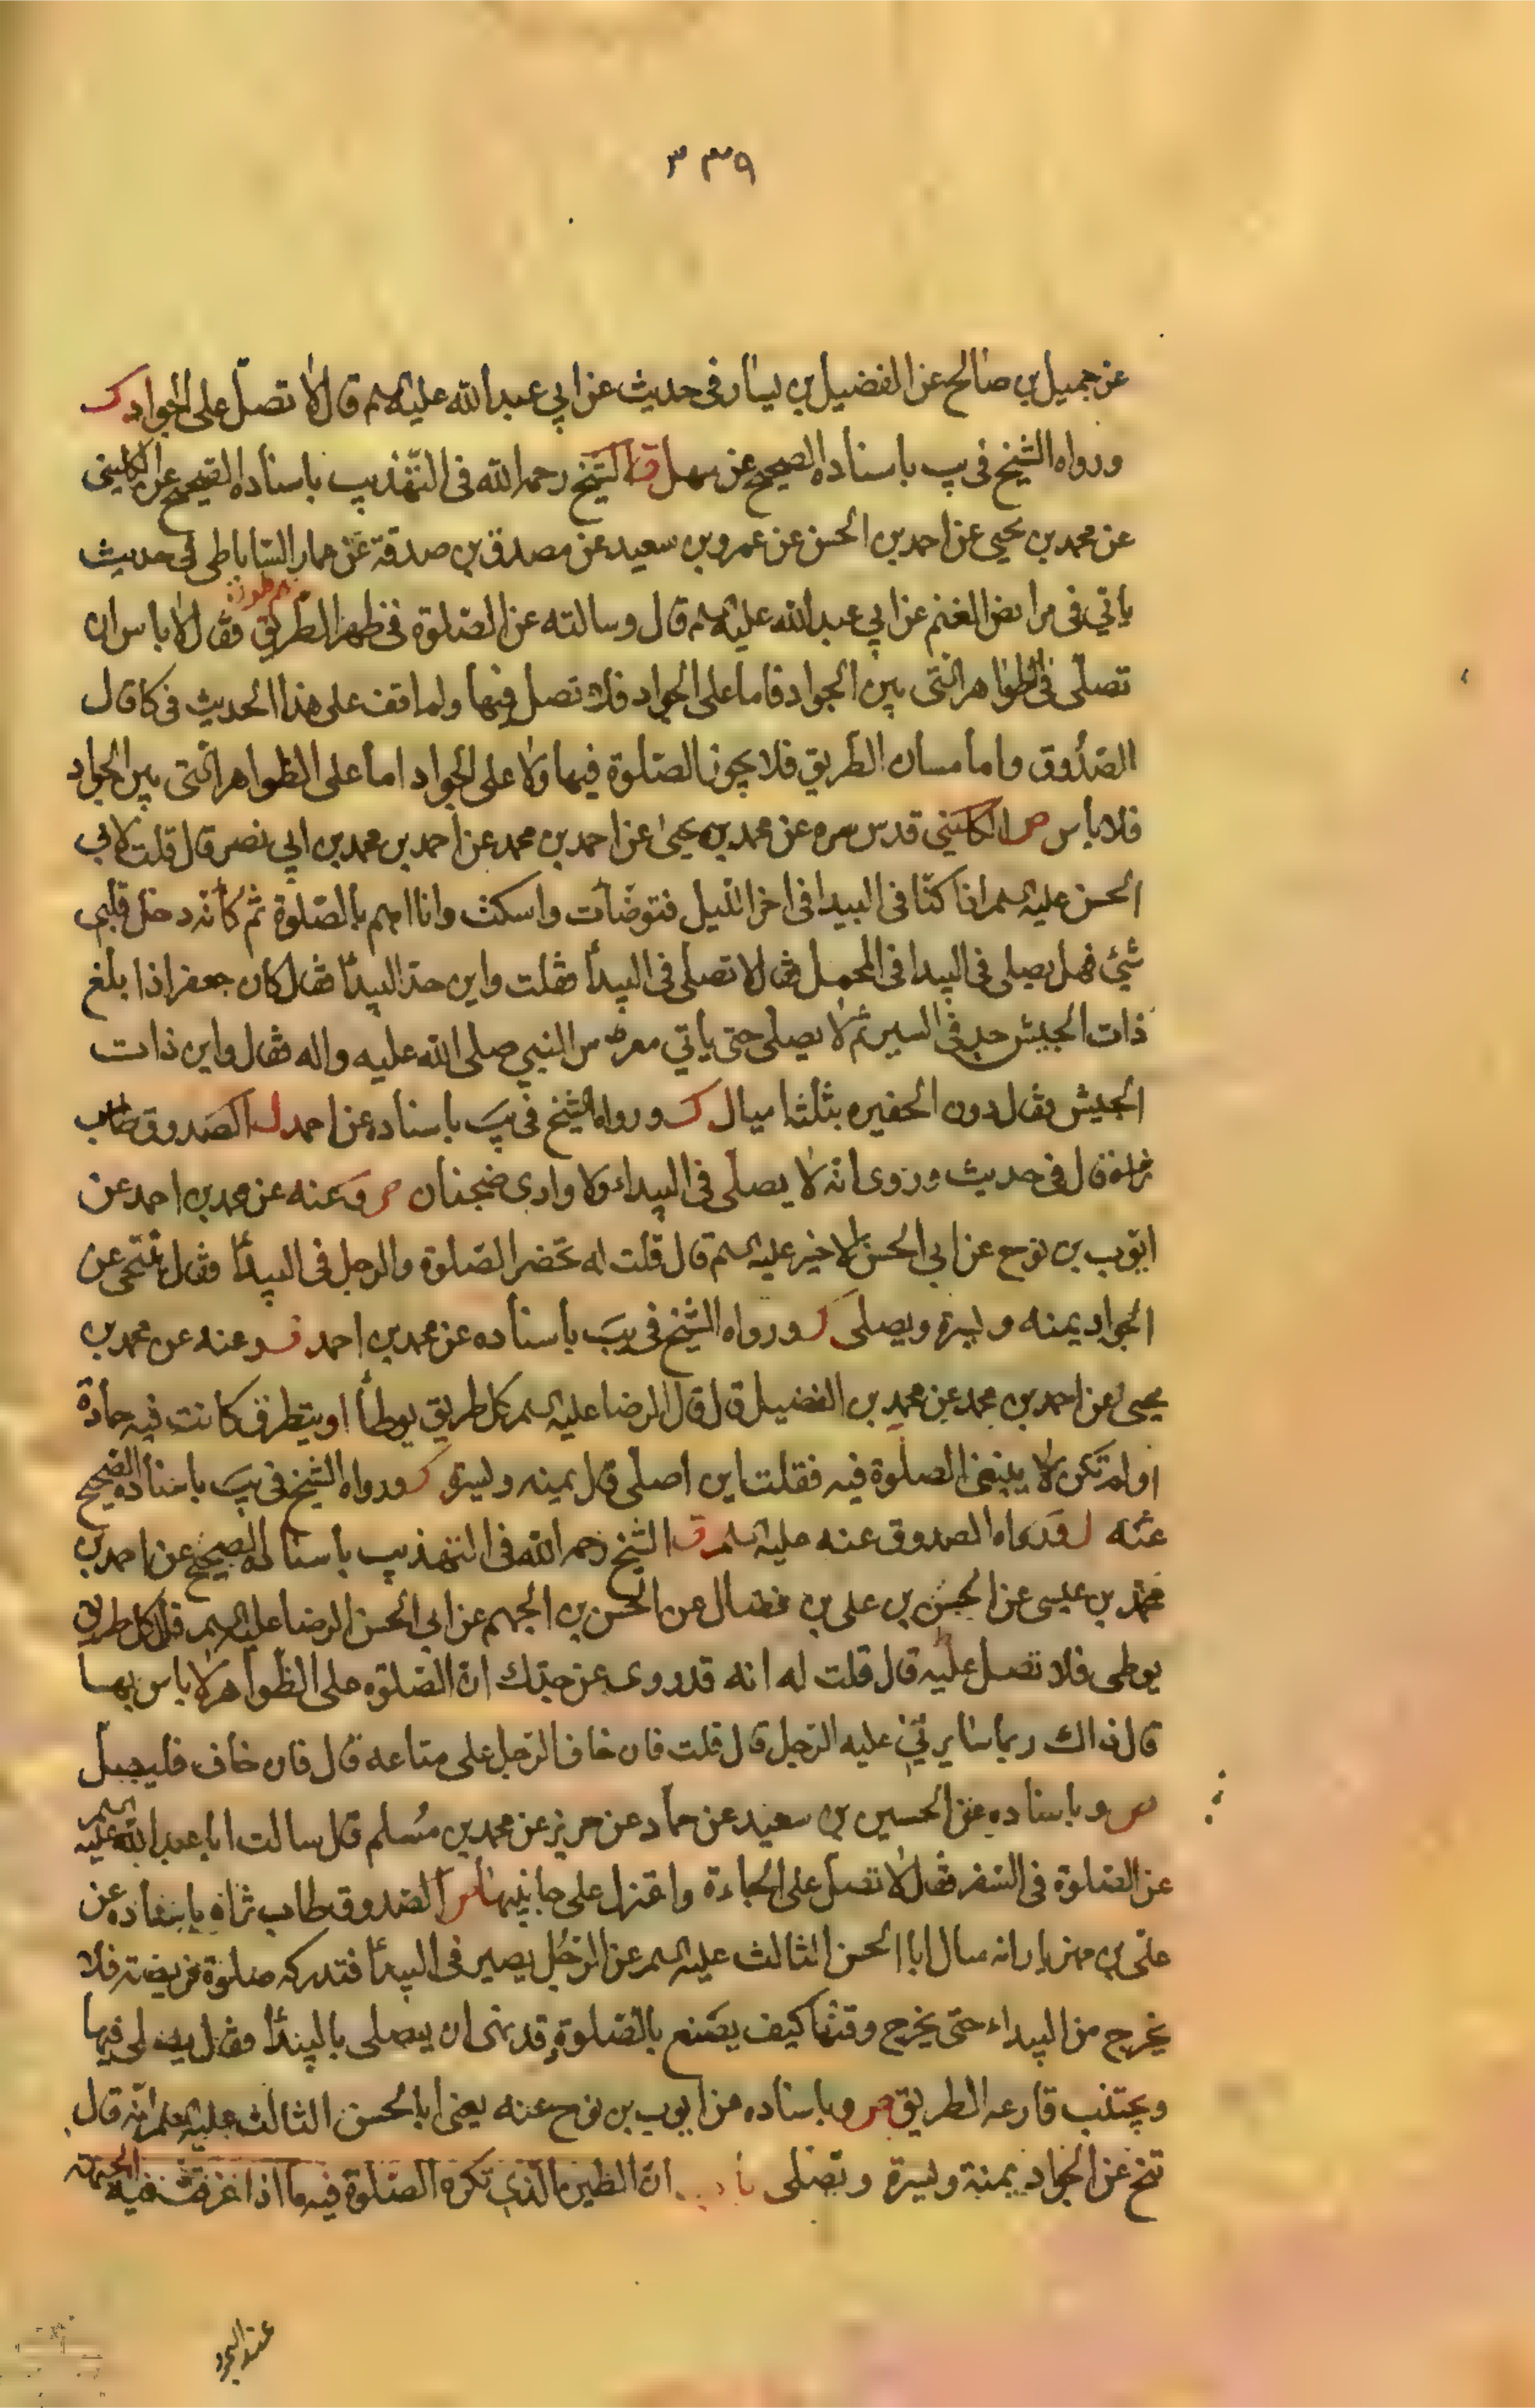 ٣٣٩
عن جميل بن صالح عن الفضيل بن يسار في حديث عن ابي عبد الله عليه السلم قال لا تصل على الجواد ك
ورواه الشيخ في يب باسناده الصحيح عن سهل ق الشيخ رحمه الله في التهذيب باسناده الصحيح عن الكليني
عن محمد بن يحيى عن احمد بن الحسن عن عمرو بن سعيد عن مصدق بن صدقة عن عمار الساباطي في حديث
ياتي في مرابض الغنم عن ابي عبد الله عليه السلم قال وسالته عن الصلوة في ظهر الطريق فقال لا باس ان
تصلي في الظواهر التي بين الجواد فاما على الجواد فلا تصل فيها ولم اقف على هذا الحديث في كا قال
الصدوق واما مسان الطريق فلا يجوز الصلوة فيها ولا على الجواد اما على الظواهر التي بين الجواد
فلا باس ص الكليني قدس سره عن محمد بن يحيى عن احمد بن محمد عن احمد بن محمد بن ابي نصر قال قلت لابي
الحسن عليه السلم انا كنا في البيدا في اخر الليل فتوضأت واسكت وانا اهم بالصلوة ثم كأنه دخل قلبي
شيئ فهل يصلى في البيدا في المحمل فقال لا تصلي في البيدأ فقلت واين حد البيدأ فقال كان جعفر اذا بلغ
ذات الجيش جد في السير ثم لا يصلى حتى ياتي معرس النبي صلى الله عليه واله فقال واين ذات
الجيش فقال دون الحفيره بثلثة اميال ك ورواه الشيخ في يب باسناده عن احمد ل الصدوق طاب
ثراه قال في حديث وروى انه لا يصلى في البيداء ولا وادى ضجنان ص وعنه عن محمد بن احمد عن
ايوب بن نوح عن ابي الحسن الاخير عليه السلم قال قلت له تحضر الصلوة والرجل في البيدأ فقال يتنحى عن
الجواد يمنه ويسرة ويصلى ك ورواه الشيخ في يب باسناده عن محمد بن احمد ق وعنه عن محمد بن
يحيى عن احمد بن محمد عن محمد بن الفضيل قال قال الرضا عليه السلم كل طريق يوطأ او يتطرق كانت فيه جادة
او لم تكن لا ينبغي الصلوة فيه فقلت اين اصلي قال يمنه ويسرة ك ورواه الشيخ في يب باسناده الصحيح
عنه ل ورواه الصدوق عنه عليه السلم ق الشيخ رحمه الله في التهذيب باسناده الصحيح عن احمد بن
محمد بن عيسى عن الحسن بن علي بن فضال عن الحسن بن الجهم عن ابي الحسن الرضا عليه السلم قال كل طريق
يوطى فلا تصل عليه قال قلت له انه قد روى عن جدك ان الصلوة على الظواهر لا باس بها
قال ذاك ربما سايرني عليه الرجل قال قلت فان خاف الرجل على متاعه قال فان خاف فليصل
ص وباسناده عن الحسين بن سعيد عن حماد عن حريز عن محمد بن مسلم قال سالت ابا عبد الله عليه السلم
عن الصلوة في السفر فقال لا تصل على الجادة واعتزل على جانبيها ص الصدوق طاب ثراه باسناده عن
علي بن مهزيار انه سال ابا الحسن الثالث عليه السلم عن الرجل يصير في البيدأ فتدركه صلوة فريضة فلا
يخرج من البيداء حتى يخرج وقتها كيف يصنع بالصلوة وقد نهى ان يصلى بالبيدأ فقال يصلى فيها
ويجتنب قارعه الطريق ص وباسناده عن ايوب بن نوح عنه يعني ابا الحسن الثالث عليه السلم انه قال
تنح عن الجواد يمنة ويسرة وتصلى ان الطين الذي تكره الصلوة فيه ما اذا غرقت فيه الجبهة